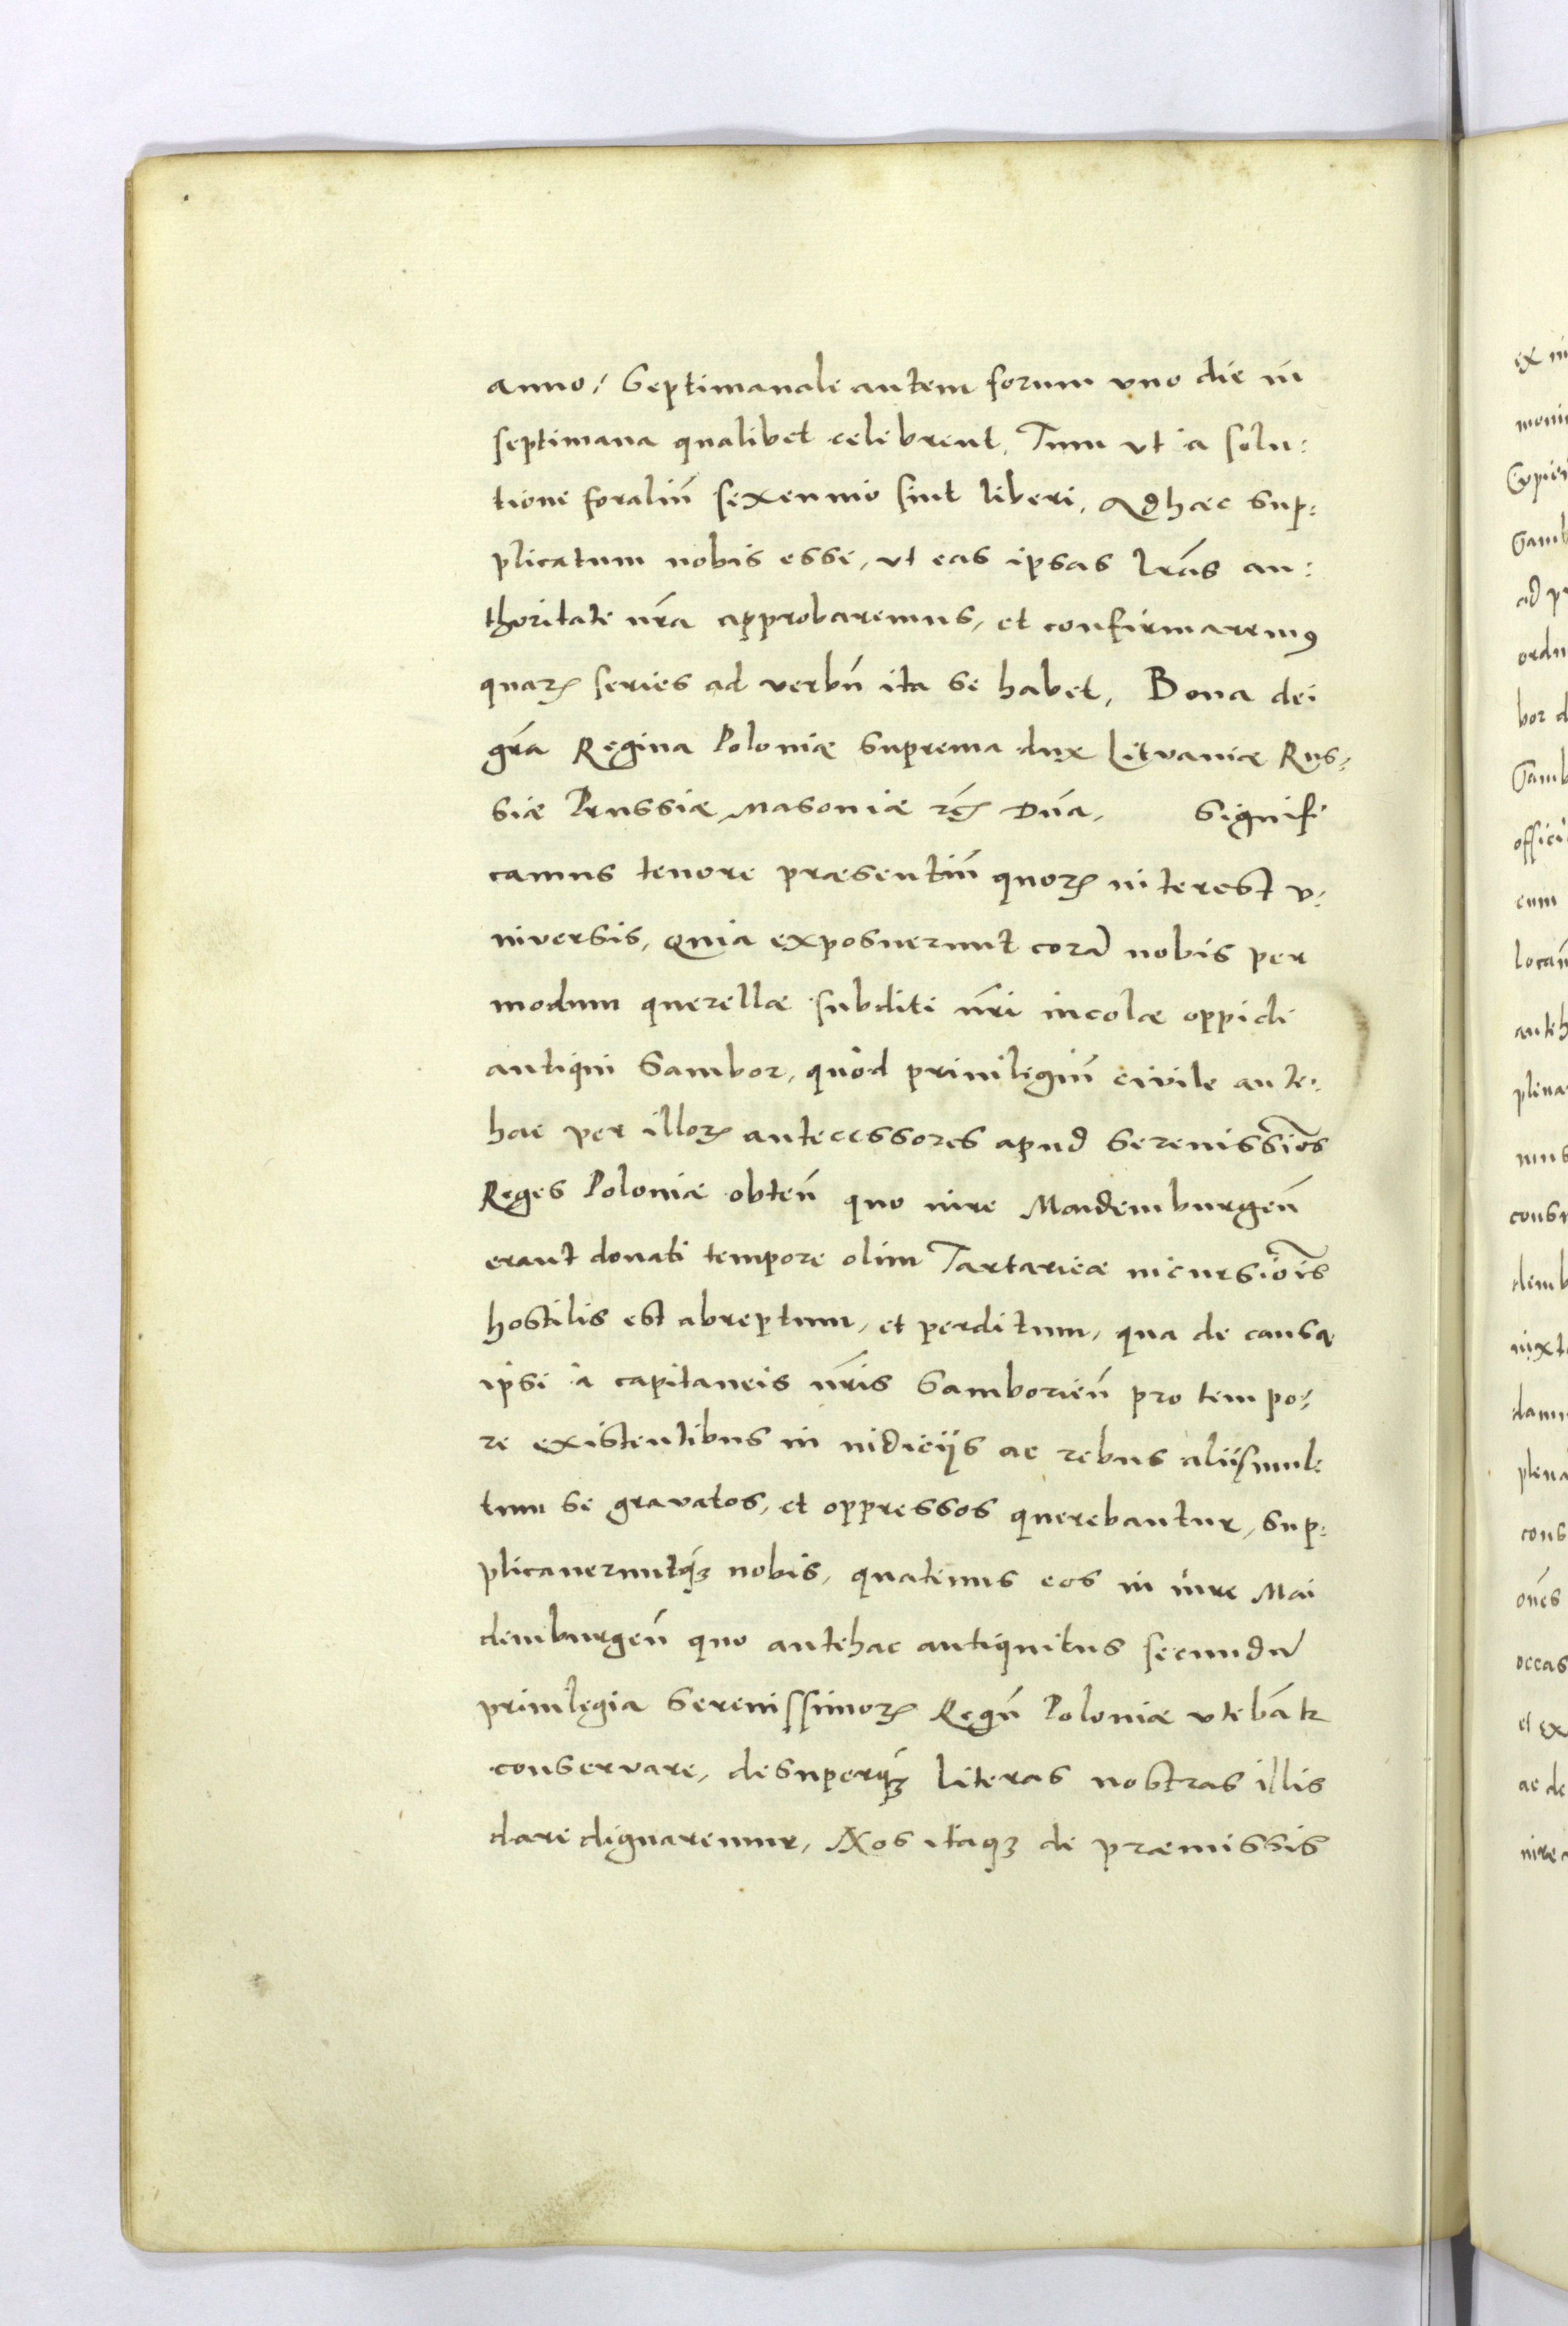 anno, Septimanale autem forum vno die in
septimana qualibet celebrent, Tum vt à solu:
tione foraliũ sexennio sint liberi, Ad haec sup:
plicatum nobis esse, vt eas ipsas lr̃as au:
thoritate nr̃a approbaremus, et confirmaremꝰ
quaꝝ series ad verbũ ita se habet, Bona dei
gr̃a Regina Poloniæ Suprema dux Lituaniæ Rus:
siæ Prussiæ Masoniæ ꝛc̃ Dña, Signifi
camus tenore præsentiũ quoꝝ interest v:
niversis, Quia exposuerunt corã nobis per
modum querellæ subditi nr̃i incolæ oppidi
antiqui Sambor, quòd priuilegiũ civile ante:
hac per illoꝝ antecessores apud Serenissĩos
Reges Poloniæ obteñ quo iure Maidemburgeñ
erant donati tempore olim Tartaricæ incursiõis
hostilis est abreptum, et perditum, qua de causa
ipsi à capitaneis nr̃is Samborieñ pro tempo:
re existentibus in iudicijs ac rebus alijs mul:
tum se gravatos, et oppressos querebantur, Sup:
plicaueruntq́ꝫ nobis, quatenus eos in iure Mai
demburgeñ quo antehac antiquitus secundũ
priuilegia Serenissimoꝝ Regũ Poloniæ vtebãtr
conservare, desuperq́ꝫ literas nostras illis
dare dignaremur, Nos itaqꝫ de præmissis